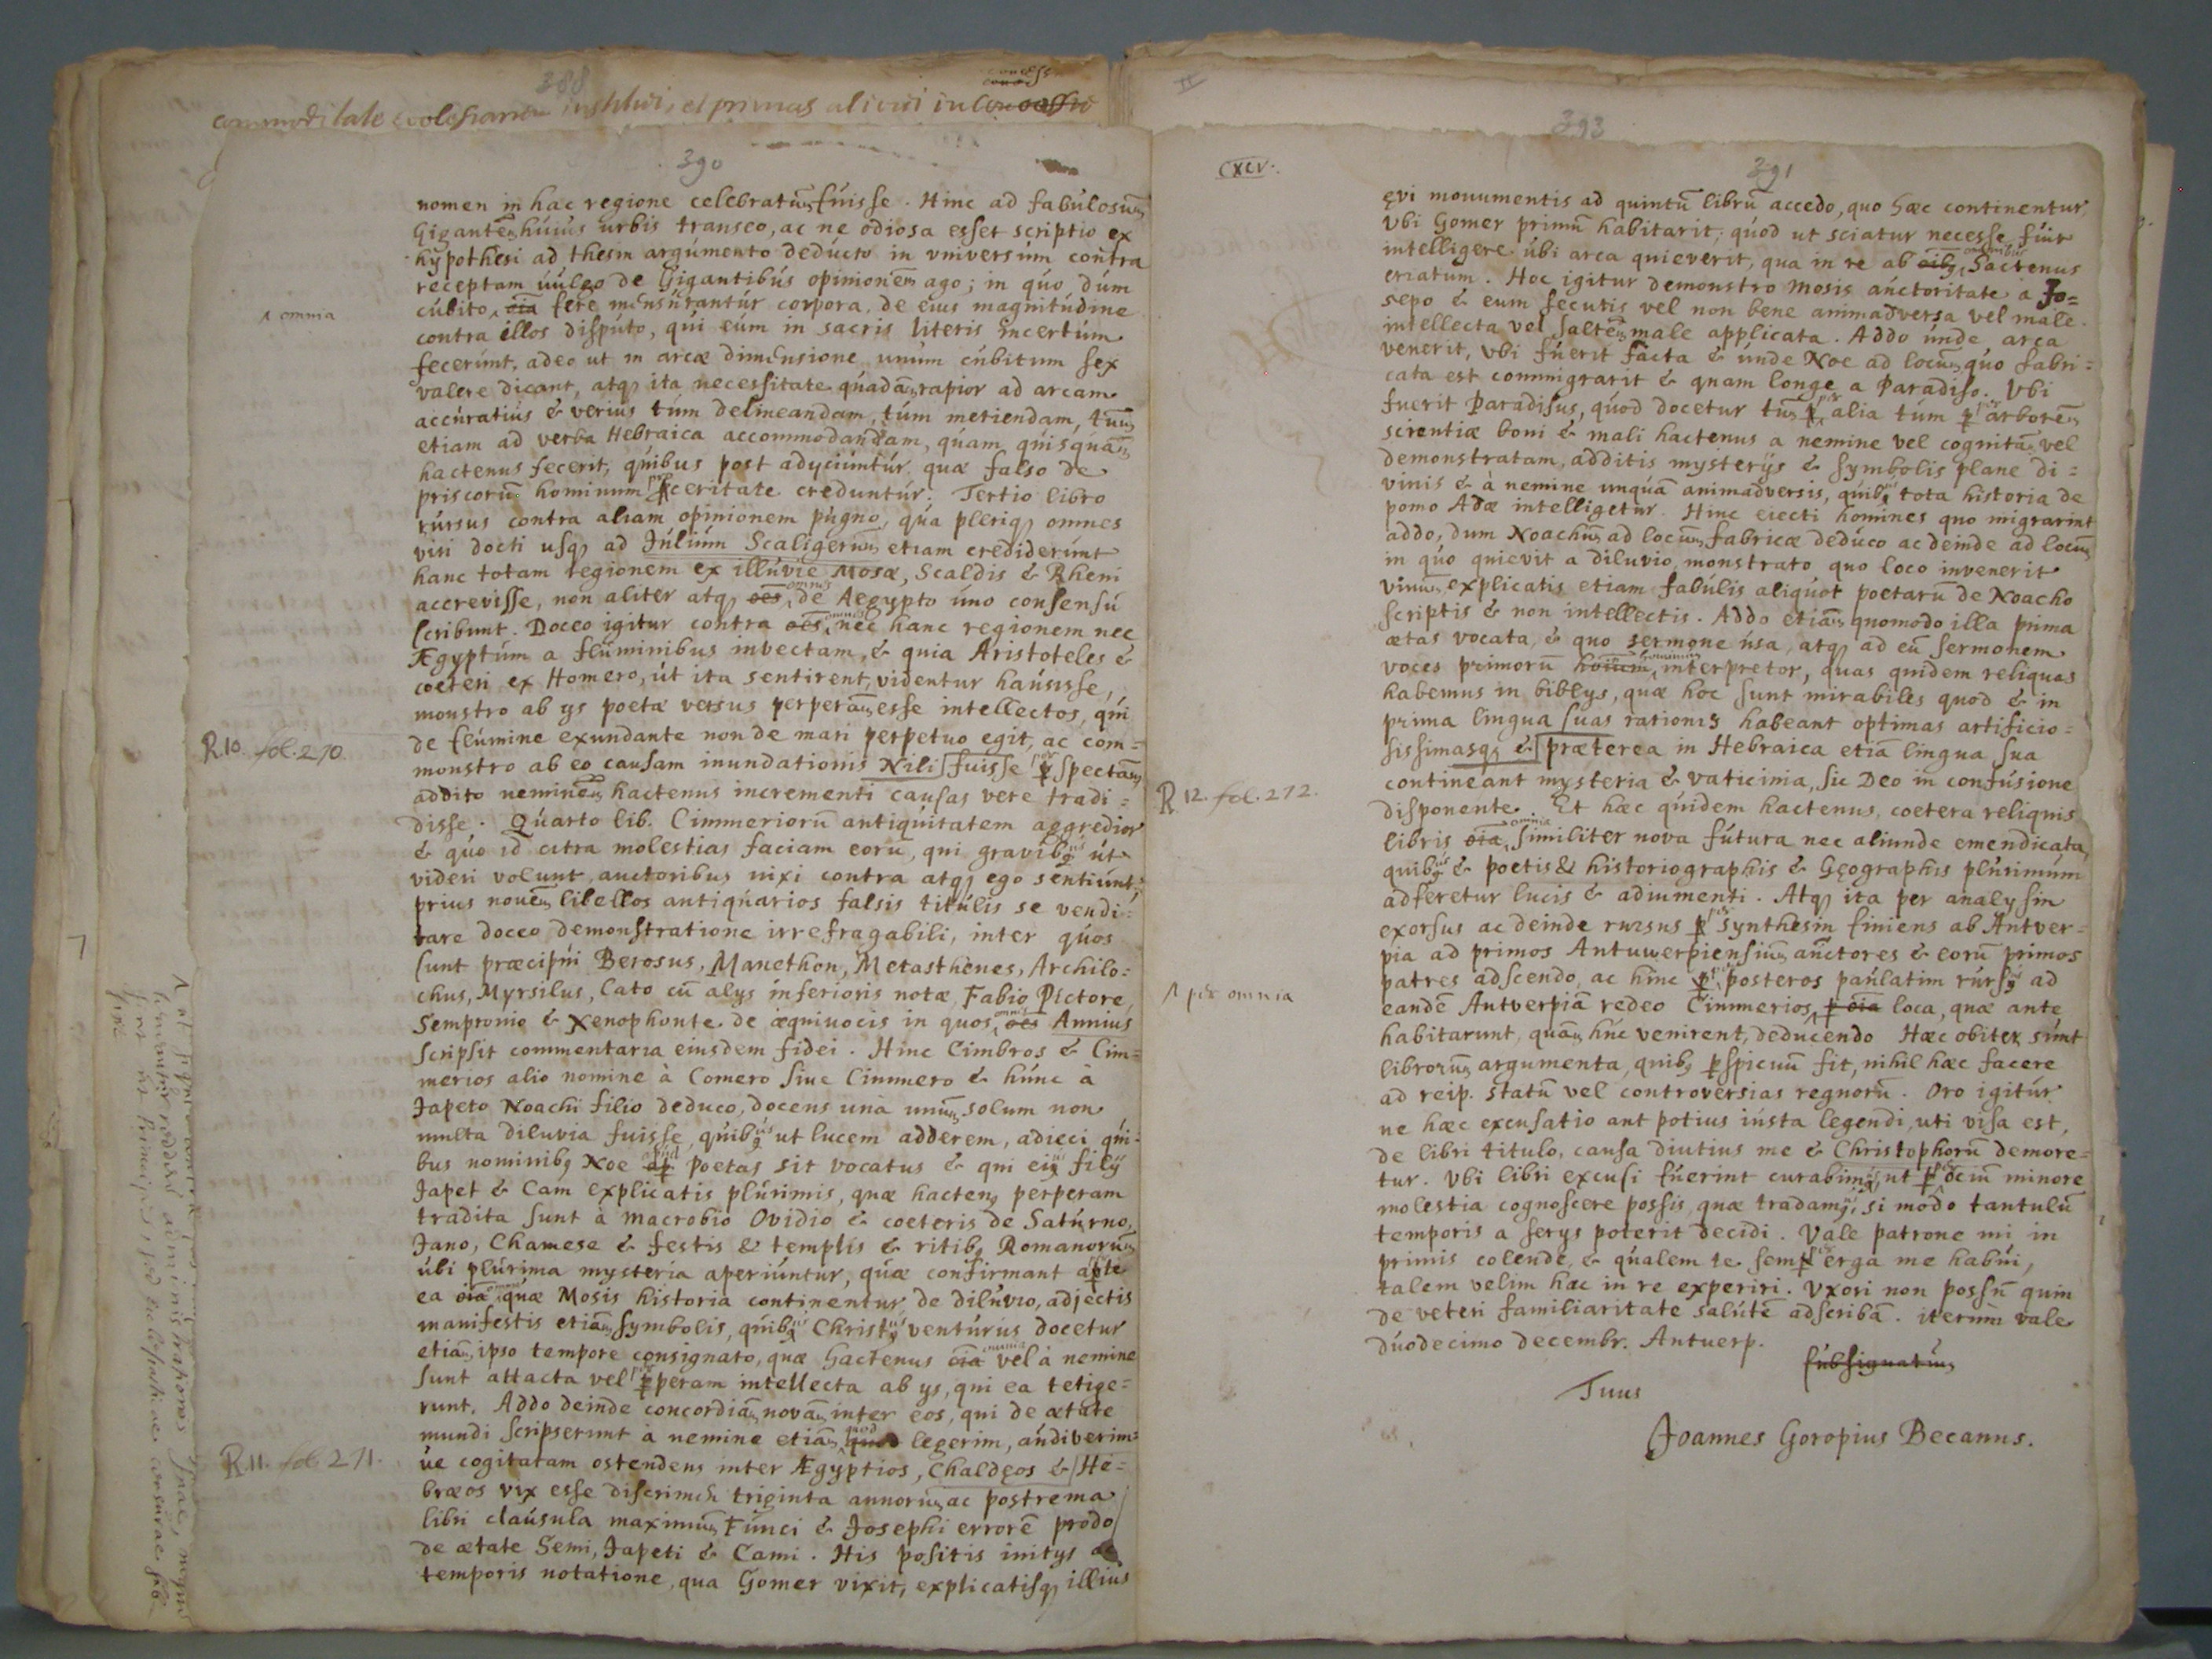 388
commoditate
390
nomen in hac regione celebratum fuisse. Hinc ad fabulosum
Gigantem huius urbis transeo, ac ne odiosa esset scriptio ex
hypothesi ad thesin argumento deducto in vniversum contra
receptam vulgo de Gigantibus opinionem ago; in quo dum
cubito, oia fere mensurantur corpora, de eius magnitudine
^ omnia
contra illos disputo, qui eum in sacris literis incertum
fecerunt, adeo ut in arcæ dimensione unum cubitum sex
valere dicant, atq ita necessitate quadam rapior ad arcam
accuratius & verius tum delineandam, tum metiendam, tum
etiam ad verba Hebraica accommodandam, quam quisquam
hactenus fecerit, quibus post adyciuntur quæ falso de
priscorū hominum proceritate creduntur. Tertio libro
rursus contra aliam opinionem pugno, qua pleriq omnes
viri docti usq ad Julium Scaligerum etiam crediderunt
hanc totam regionem ex illuvie Mosæ, Scaldis & Rheni
accrevisse, non aliter atq oēs omnis de Aegypto uno consensu
scribunt. Doceo igitur contra oēs omnis nec hanc regionem nec
Ægyptum a fluminibus invectam, & quia Aristoteles &
coeteri ex Homero, ut ita sentirent, videntur hausisse,
monstro ab ys poetæ versus perperam esse intellectos, qui
de flumine exundante non de mari perpetuo egit, ac com=
R.10. fol. 270.
monstro ab eo causam inundationis Nili fuisse p spectam
addito neminem hactenus incrementi causas vere tradi=
disse. Quarto lib. Cimmeriorū antiquitatem aggredior
& quo id citra molestias faciam eorū, qui gravibus ut
videri volunt, auctoribus nixi contra atq ego sentiunt,
prius novem libellos antiquarios falsis titulis se vendi=
tare doceo demonstratione irrefragabili, inter quos
sunt præcipui Berosus, Manethon, Metasthenes, Archilo=
chus, Myrsilus, Cato cū alys inferioris notæ, Fabio Pictore,
Sempronio & Xenophonte de æquiuocis in quos omnis oēs Annius
scripsit commentaria eiusdem fidei. Hinc Cimbros & Cim=
merios alio nomine à Comero siue Cimmero & hunc à
Japeto Noachi filio deduco, docens una unum solum non
multa diluvia fuisse, quibus ut lucem adderem, adieci qui=
bus nominibq Noe ap apud poetas sit vocatus & qui eius filÿ
Japet & Cam explicatis plurimis, quæ hactenq perperam
tradita sunt à Macrobio Ovidio & coeteris de Saturno,
Jano, Chamese & festis & templis & ritibq Romanorum
ubi plurima mysteria aperiuntur, quæ confirmant aperte
ea oia omnia quæ Mosis historia continentur de diluvio, adjectis
manifestis etiam symbolis, quibus Christus venturus docetur
etiam ipso tempore consignato, quæ hactenus oia omnia vel à nemine
sunt attacta vel perperam intellecta ab ys, qui ea tetige=
runt. Addo deinde concordiam novam inter eos, qui de ætate
mundi scripserunt à nemine etiam quod quod legerim, audiverim=
R.11. fol. 271.
ue cogitatam ostendens inter Ægyptios, Chaldęos & He=
bræos vix esse discrimen triginta annorum ac postrema
libri clausula maximum Funci & Josephi errorē prodo
de ætate Semi, Japeti & Cami. His positis initys ac
temporis notatione, qua Gomer vixit, explicatisq illius
393
CXCV.
391
ęvi monumentis ad quintū librū accedo, quo hæc continentur,
Vbi Gomer primū habitarit; quod ut sciatur necesse fuit
intelligere ubi arca quieverit, qua in re ab oibq omnibus hactenus
erratum. Hoc igitur demonstro Mosis auctoritate a Jo=
sepo & eum secutis vel non bene animadversa vel male
intellecta vel saltem male applicata. Addo unde arca
venerit, vbi fuerit facta & unde Noe ad locum quo fabri=
cata est commigrarit & quam longe a Paradiso. Vbi
fuerit Paradisus, quod docetur tum p per alia tum p per arborem
scientiæ boni & mali hactenus a nemine vel cognitam vel
demonstratam, additis mysterÿs & symbolis plane di=
vinis & à nemine unquā animadversis, quibus tota historia de
pomo Adæ intelligetur. Hinc eiecti homines quo migrarint
addo, dum Noachum ad locum fabricæ deduco ac deinde ad locum
in quo quievit a diluvio, monstrato quo loco invenerit
vinum explicatis etiam fabulis aliquot poetarū de Noacho
scriptis & non intellectis. Addo etiam quomodo illa prima
ætas vocata, & quo sermone usa, atq ad eū sermonem
voces primorū hoium hominum interpretor, quas quidem reliquas
habemus in biblys, quæ hoc sunt mirabiles quod & in
prima lingua suas rationis habeant optimas artificio=
sissimasq & præterea in Hebraica etiā lingua sua
contineant mysteria & vaticinia, sic Deo in confusione
R. 12. fol. 272.
disponente. Et hæc quidem hactenus, coetera reliquis
libris oia omnia similiter nova futura nec aliunde emendicata,
quibus & poetis & historiographis & Gęographis plurimum
adferetur lucis & adiumenti. Atq ita per analysin
exorsus ac deinde rursus p per synthesin finiens ab Antver=
pia ad primos Antuwerpiensium auctores & eorū primos
patres adscendo, ac hinc p per posteros paulatim rursus ad
^ per omnia
eandē Antverpiā redeo Cimmerios ^ p oia loca, quæ ante
habitarunt, quam huc venirent, deducendo Hæc obiter sunt
librorum argumenta, quibq pspicuū fit, nihil hæc facere
ad reip. statū vel controversias regnorū. Oro igitur
ne hæc excusatio aut potius iusta legendi, uti visa est,
de libri titulo, causa diutius me & Christophorū demore=
tur. Vbi libri excusi fuerint curabimus, ut p per ociū minore
molestia cognoscere possis, quæ tradamus, si modo tantulū
temporis a serys poterit decidi. Vale patrone mi in
primis colende, & qualem te semper erga me habui,
talem velim hac in re experiri. Vxori non possū quin
de veteri familiaritate salutē adscribā. iterum vale
duodecimo decembr. Antuerp.
subsignatum
Tuus
Joannes Goropius Becanus.